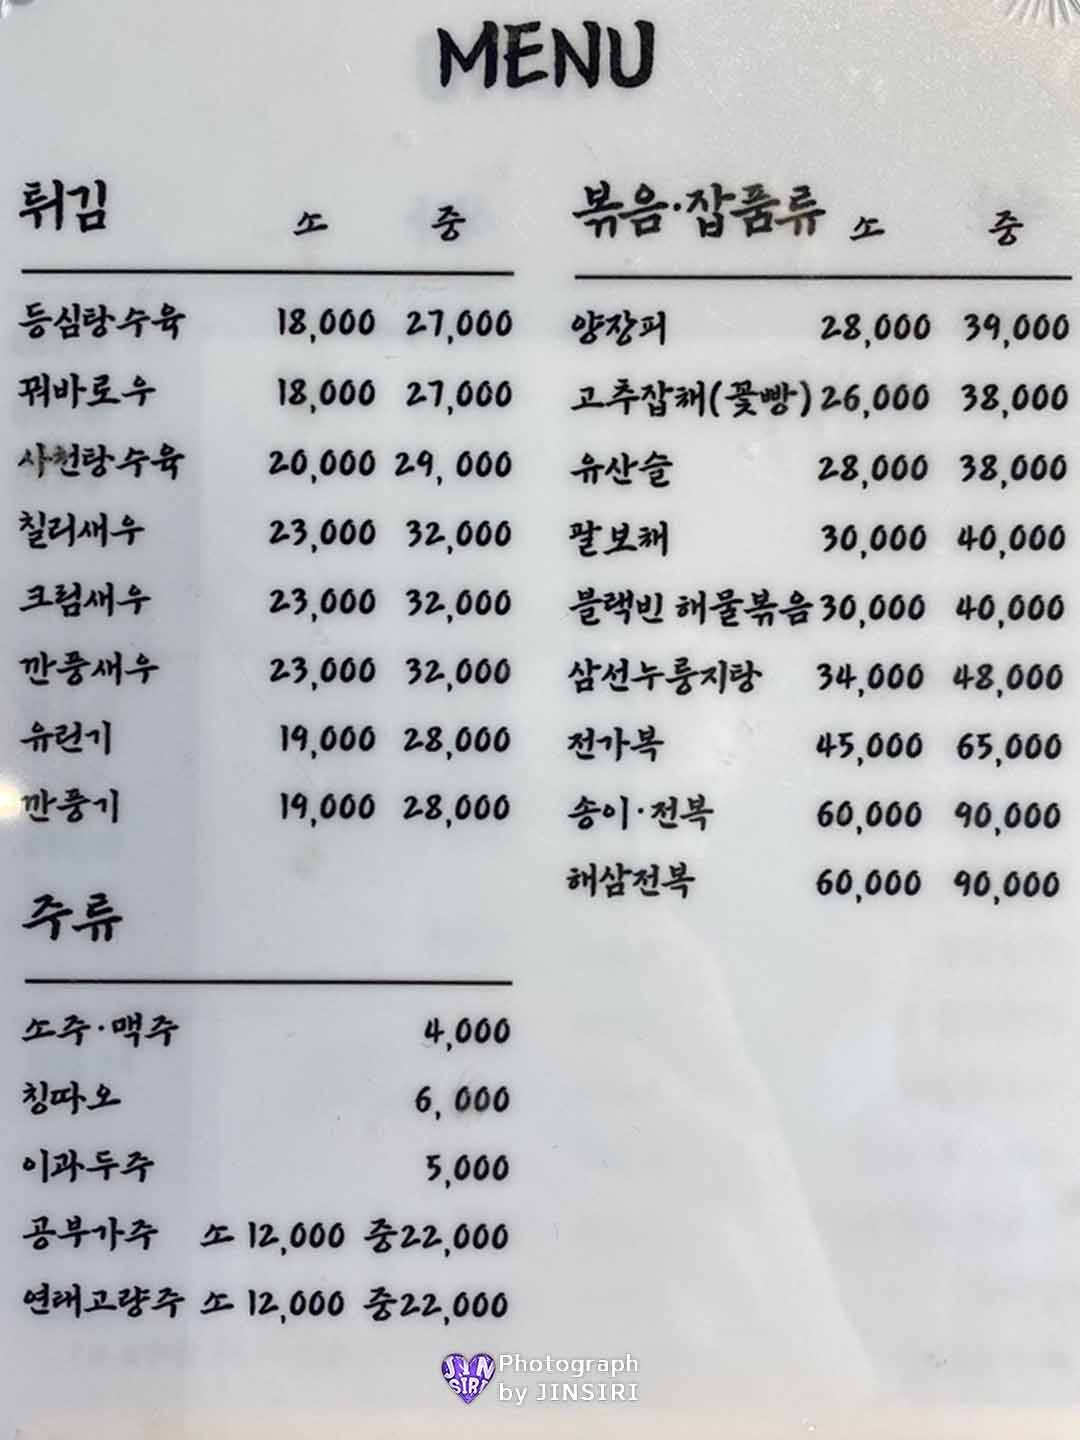 MENU
튀김 소 중
등심탕수육 18,000 27,000
꿔바로우 18,000 27,000
사천탕수육 20,000 29, 000
칠리새우 23,000 32,000
크림새우 23,000 32,000
깐풍새우 23,000 32,000
유린기 19,000 28,000
깐풍기 19,000 28,000
주류
소주·맥주 4,000
칭따오 6, 000
이과두주 5,000
공부가주 소 12,000 중22,000
연태고량주 소 12,000 중22,000
볶음·잡품류 소 중
양장피 28,000 39,000
고추잡채(꽃빵) 26,000 38,000
유산슬 28,000 38,000
팔보채 30,000 40,000
블랙빈 해물볶음 30,000 40,000
삼선누룽지탕 34,000 48,000
전가복 45,000 65,000
송이·전복 60,000 90,000
해삼전복 60,000 90,000
JIN SIRI
Photograph
by JINSIRI